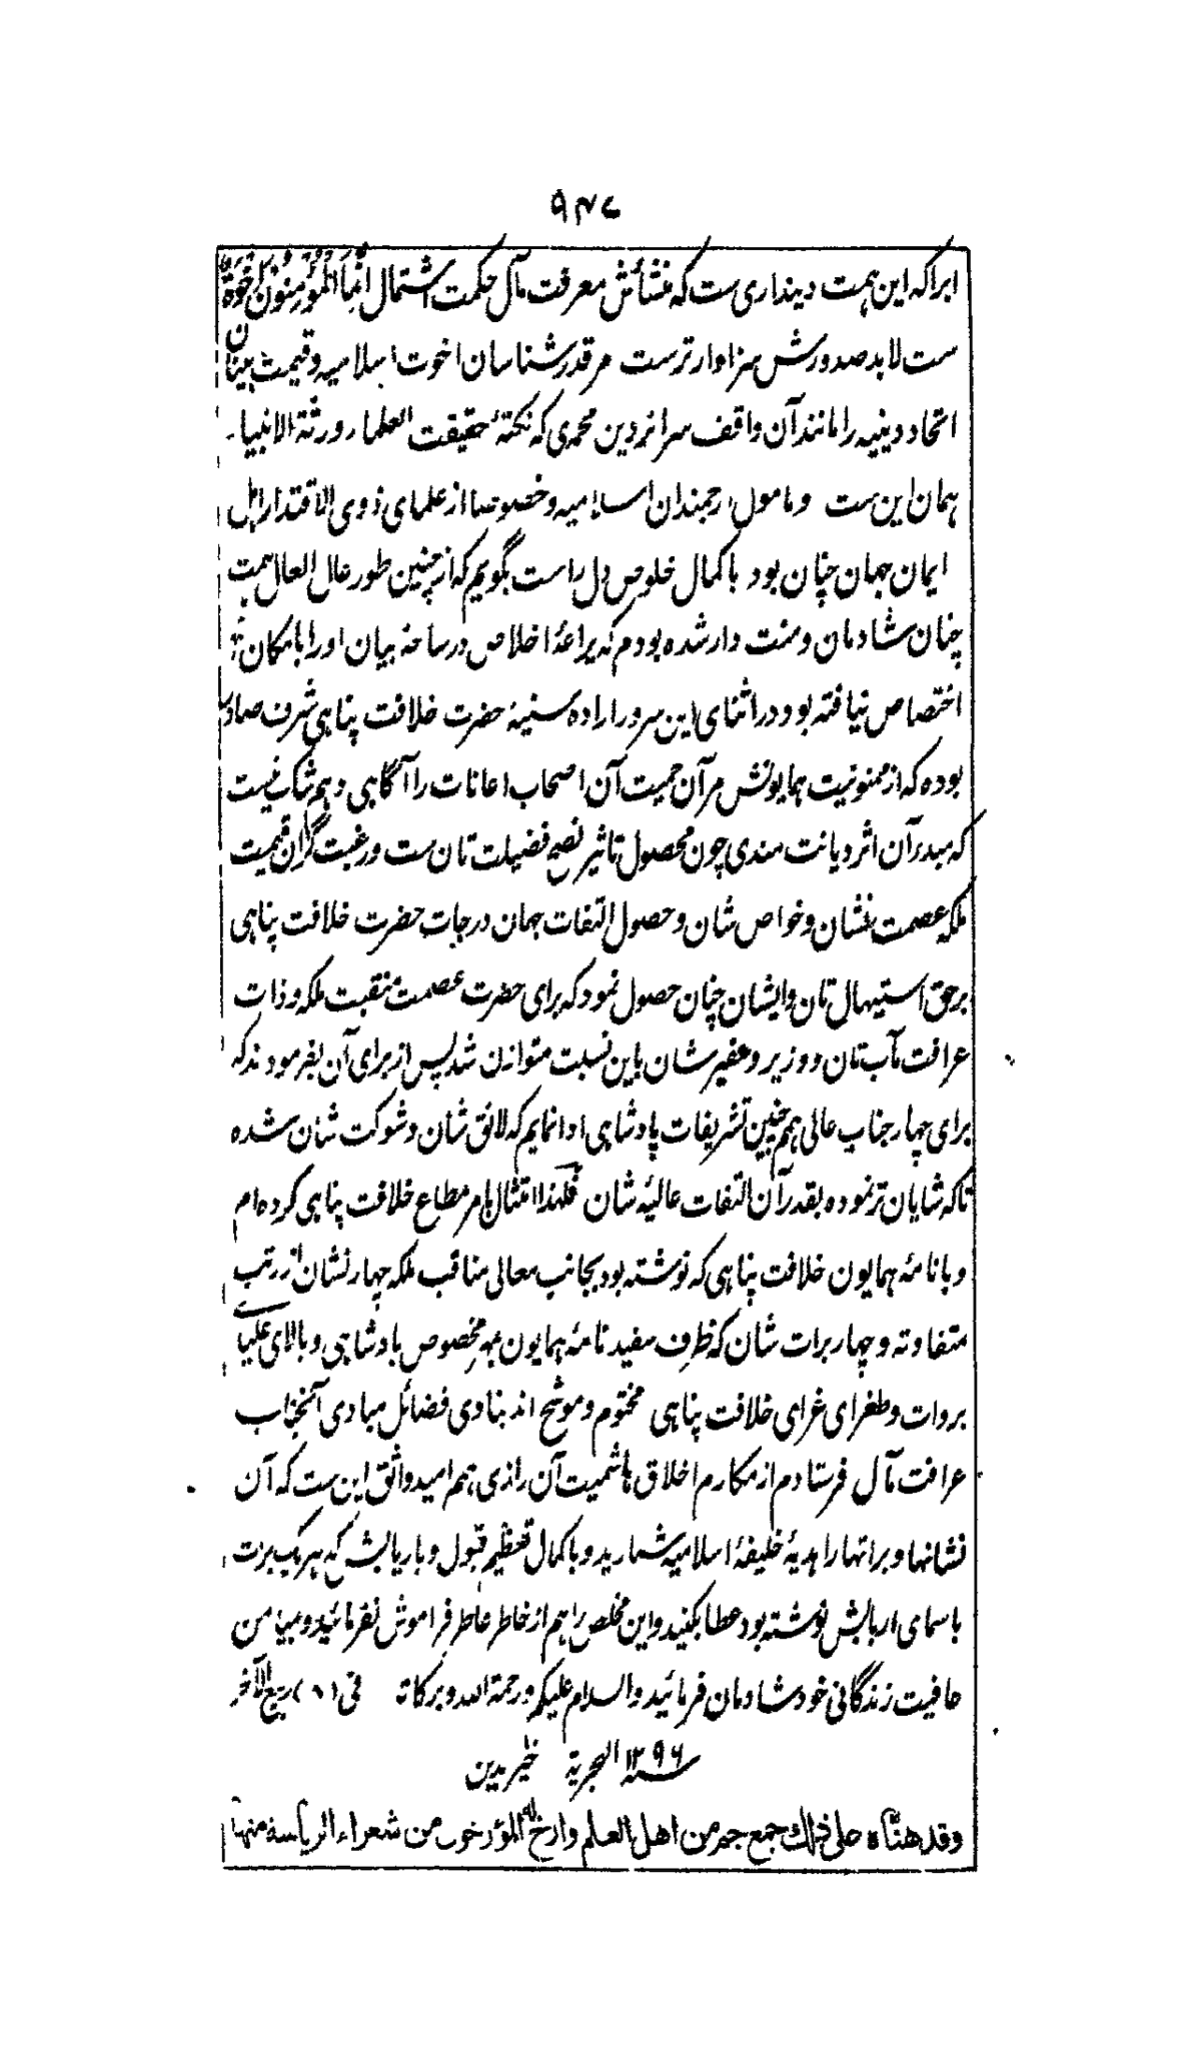 ۹۴۷
ابراکه این همت دینداری ست که منشأش معرفت مآل حکمت اشتمال انما المؤمنون اخوة
ست لابد صدورش سزاوارترست هر قدرشناسان اخوت اسلامیه وقیمت بینان
اتحاد دینیه را مانند آن واقف سرائر دین محمدی که نکتهٔ حقیقت العلماء ورثة الانبیاء
همان این ست ومامول ارجمندان اسلامیه وخصوصا از علمای ذوی الاقتدار اهل
ایمان جهان چنان بود باکمال خلوص دل راست بگویم که از چنین طور عال العال همت
چنان شادمان ومنت دار شده بودم که براعهٔ اخلاص در ساحهٔ بیان اورا بامکان
اختصاص نیافته بود ودر اثنای این سرور ارادهٔ سنیهٔ حضرت خلافت پناهی شرف صادر
بوده که از ممنونیت همایونش مرآن حمیت آن اصحاب اعانات را آگاهی دهم شک نیست
که مبدر آن اثر دیانت مندی چون محصول تاثیر نصح فضیلت تان ست ورغبت گران قیمت
ملکه عصمت نشان وخواص شان وحصول التفات بهمان درجات حضرت خلافت پناهی
برحق استیهال تان وایشان چنان حصول نمود که برای حضرت عصمت منقبت ملکه وذات
عرافت مآب تان ووزیر وعفیر شان باین نسبت متوازن شد پس از برای آن بفرمودند که
برای چهار جناب عالی هم چنین تشریفات پادشاهی ادا نمایم که لائق شان وشوکت شان شده
تاکه شایان تر نموده بقدر آن التفات عالیهٔ شان فلهذا امتثال بامر مطاع خلافت پناهی کرده ام
وبا نامهٔ همایون خلافت پناهی که نوشته بود بجانب معالی مناقب ملکه چهار نشان از رتب
متفاوته وچهار برات شان که ظرف مفید نامهٔ همایون بمهر مخصوص بادشاهی وبالای علیای
بروات وطغرای غرای خلافت پناهی مختوم وموشح اند بنادی فضائل مبادی آنجناب
عرافت مآل فرستادم از مکارم اخلاق هاشمیت آن رازی هم امید واثق این ست که آن
نشانها وبراتها را هدیهٔ خلیفهٔ اسلامیه شمارید وباکمال تعظیم قبول وباربابش که بهر یک برت
باسمای اربابش نوشته بود عطا بکنید واین مخلص را هم از خاطر عاطر فراموش نفرمائید وبمیامن
عافیت زندگانی خود شادمان فرمائید والسلام علیکم ورحمة الله وبرکاته فی (۸) ربیع الآخر
سنه ۱۲۹۶ الهجریة خیر الدین
وقد هنأه علی ذلک جمع جم من اهل العلم وارخ له المؤرخون من شعراء الریاسة منها